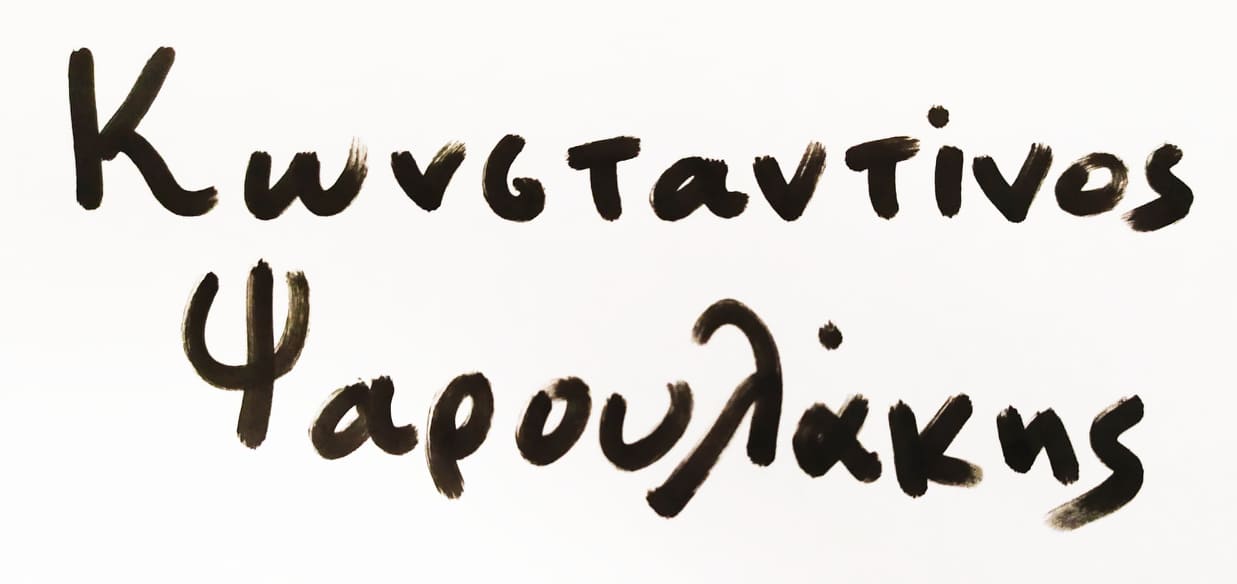 Κωνσταντίνος
Ψαρουλάκης